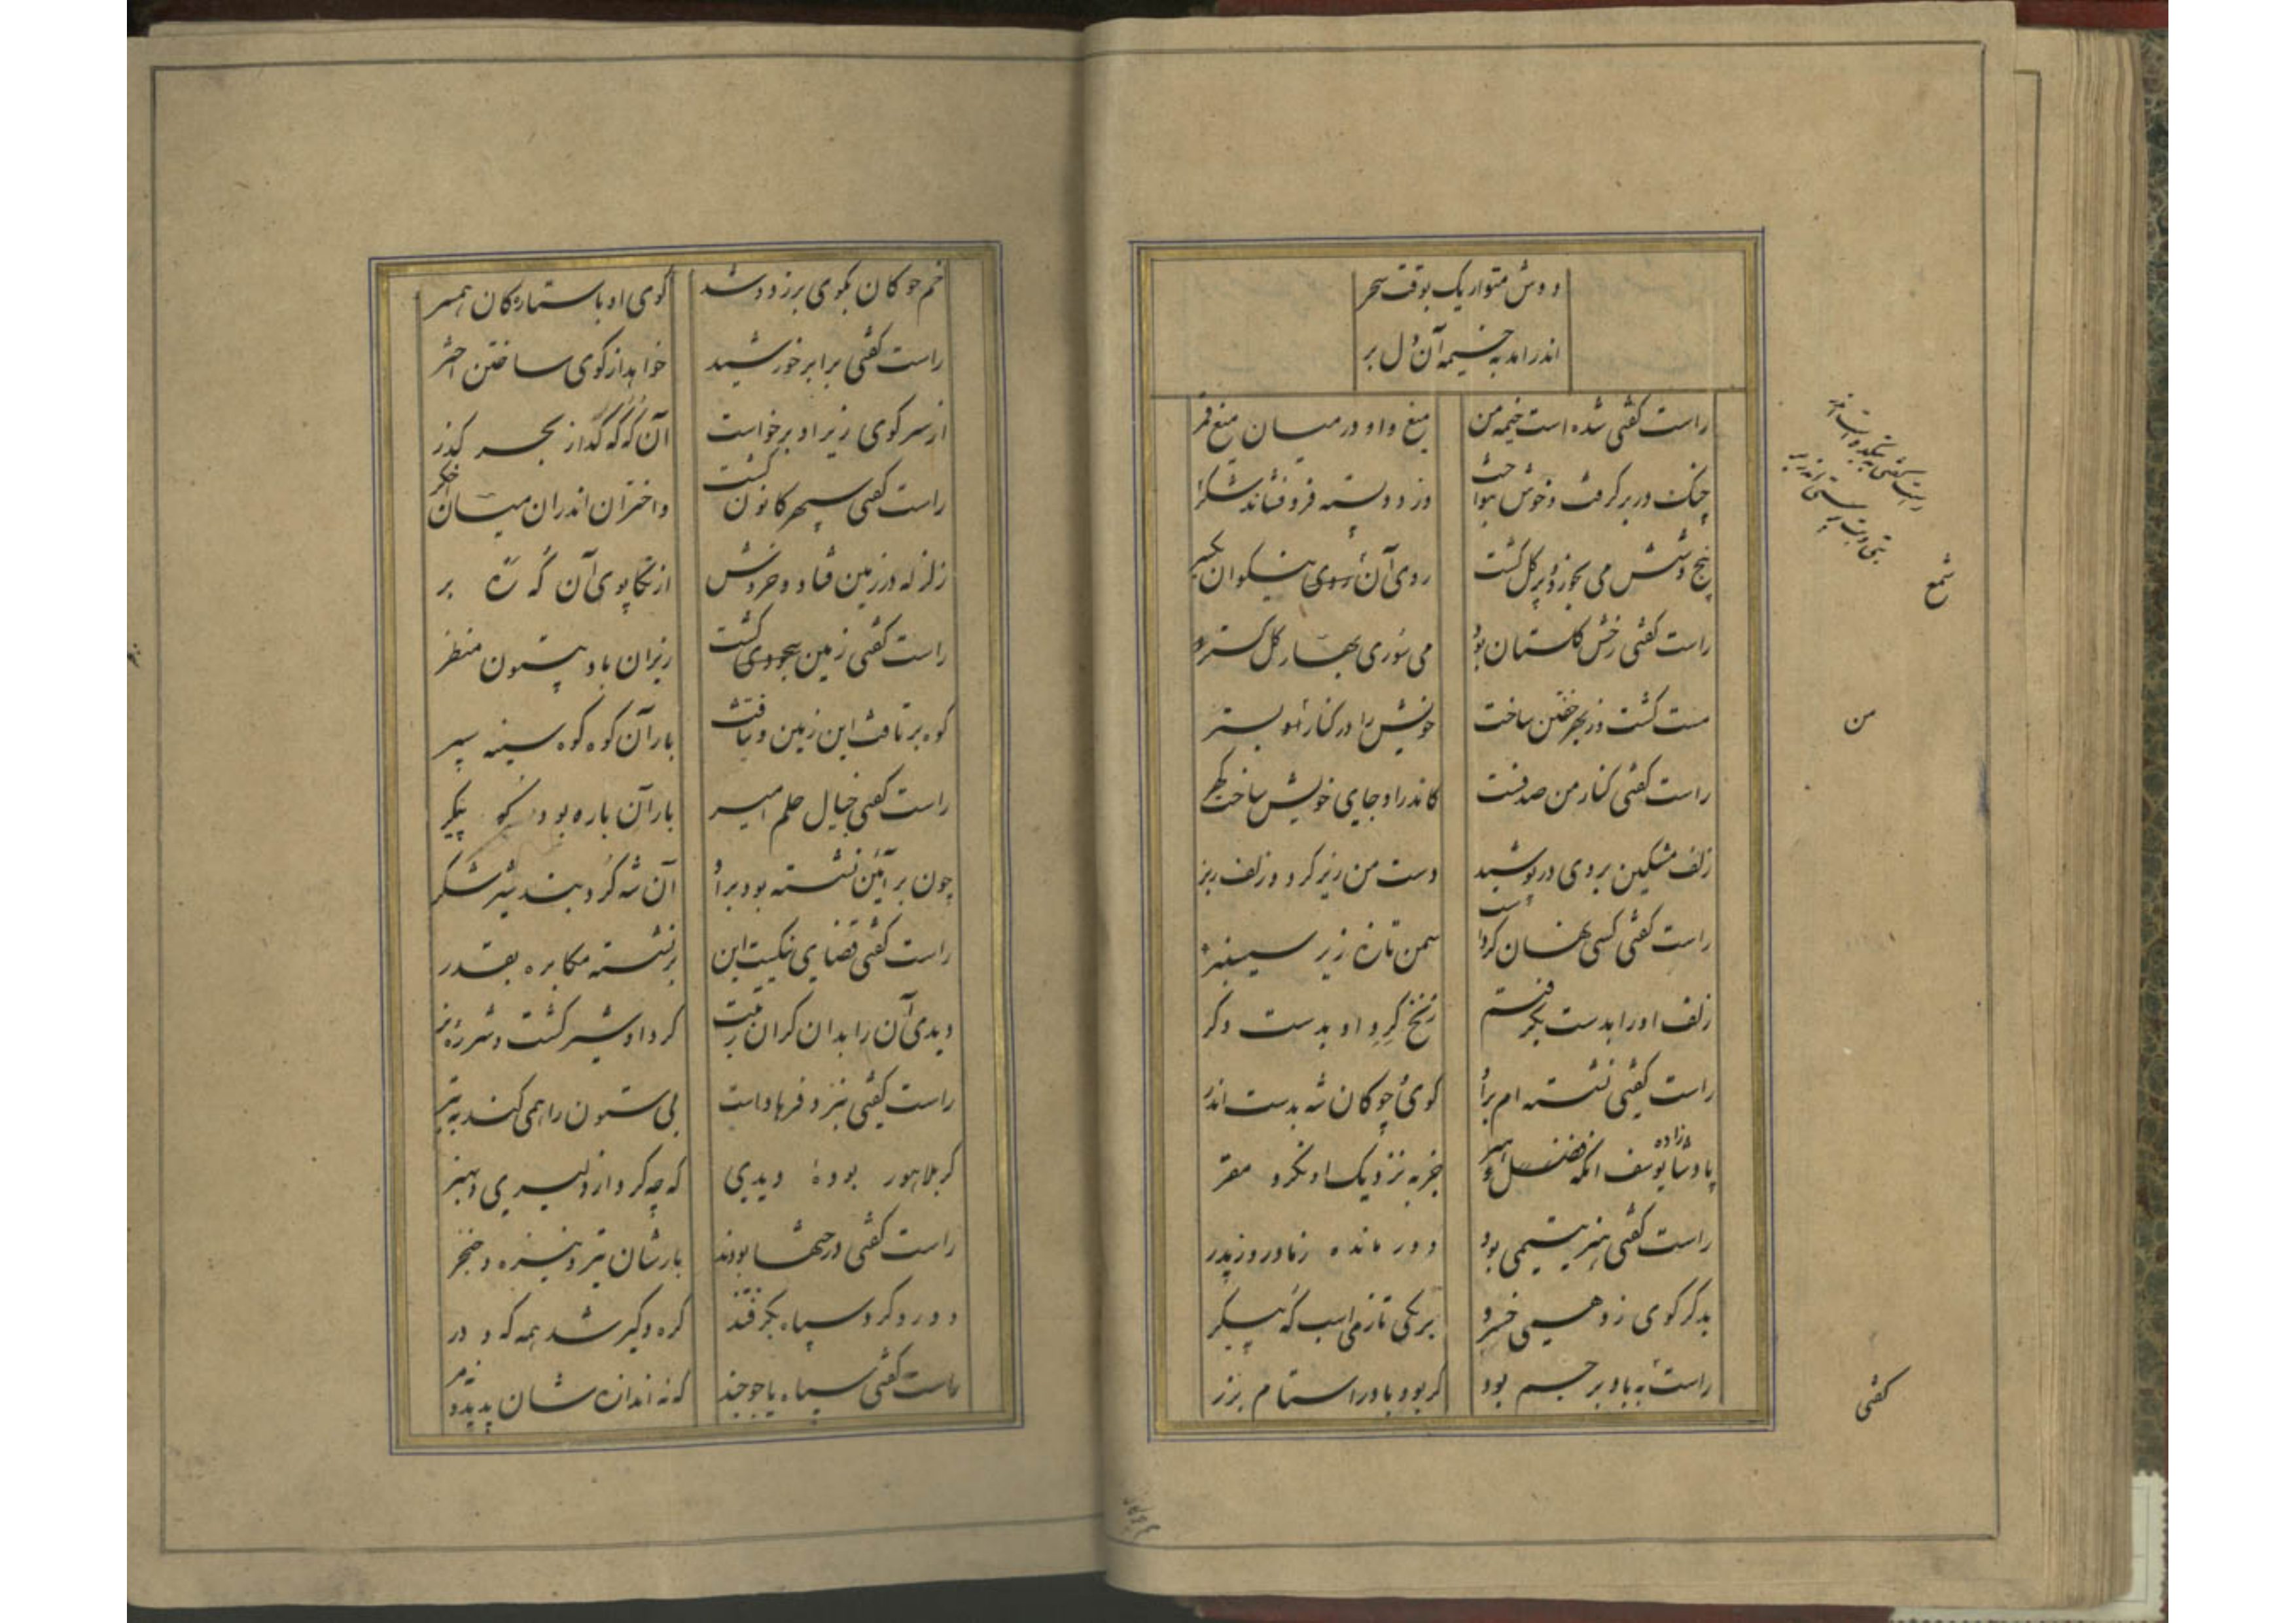 دوش متواریک بوقت سحر
اندر امد به خیمه آن دل بر
راست کفتی شده است خیمه من میغ و او در میان میغ قمر
چنک در بر کرفت و خوش بنواخت وز دو بسته فرو فشاند شکر
پنج و شش می بخورد و پر کل کشت روی آن روی نیکوان یکسر
راست کفتی رخش کلستان بود می سوری بهار کل کستر
مست کشت وز بهر خفتن ساخت خویش را در کنار او بستر
راست کفتی کنار من صدفست کاندر او جای خویش ساخت کهر
زلف مشکین بروی در پوشید دست من زیر کرد و زلف زبر
راست کفتی کسی نهان کرد است سمن تازه زیر سیسنبر
زلف او را بدست بکرفتم زنخ کرد او بدست دکر
راست کفتی نشسته ام بر او کوی چوکان شه بدست اندر
پادشازاده یوسف انکه هنر جز به نزدیک او نکرد مقر
راست کفتی هنر یتیمی بود دور مانده ز مادر و ز پدر
بدکر کوی زد همی خسرو بر یکی تازی اسب که پیکر
راست به باد بر جسم بود کر بود باد را ستام بزر
شمع
من
کفتی
خم چوکان بکوی بر زد و شد کوی او با ستارکان همسر
راست کفتی برابر خورشید خواهد از کوی ساختن اختر
از سر کوی زیر او برخواست آن که که کذار بحر کذر
راست کفتی سپهر کانون کشت و اختران اندران میان اخکر
زلزله در زمین فتاد و خروش از تکاپوی آن که ره بر
راست کفتی زمین بخود می کشت زیر آن باد بیستون منظر
کوه برتافت این زمین و نتافت بار آن کوه کوه سینه سپر
راست کفتی جبال حلم امیر بار آن باره بود که پیکر
چون بر آئین نشسته بود بر او آن شه کرد بند شیر شکر
راست کفتی قضای نیکست این بر نشسته مکابره بقدر
دیدی آن را بدان کران تیشت کرد او شیر کشت و شرزه نر
راست کفتی بنزد فرهاد است بی ستون را همی کند به تبر
کر بلاهور بودهٔ دیدی که چه کرد از دلیری و هنر
راست کفتی درختها بودند بارشان تیر و نیزه و خنجر
دور و کرد سپاه بکرفتند کره و کیر شد همه که و در
راست کفتی سپاه یاجوجند که نه اندازه شان پدید و نه مر